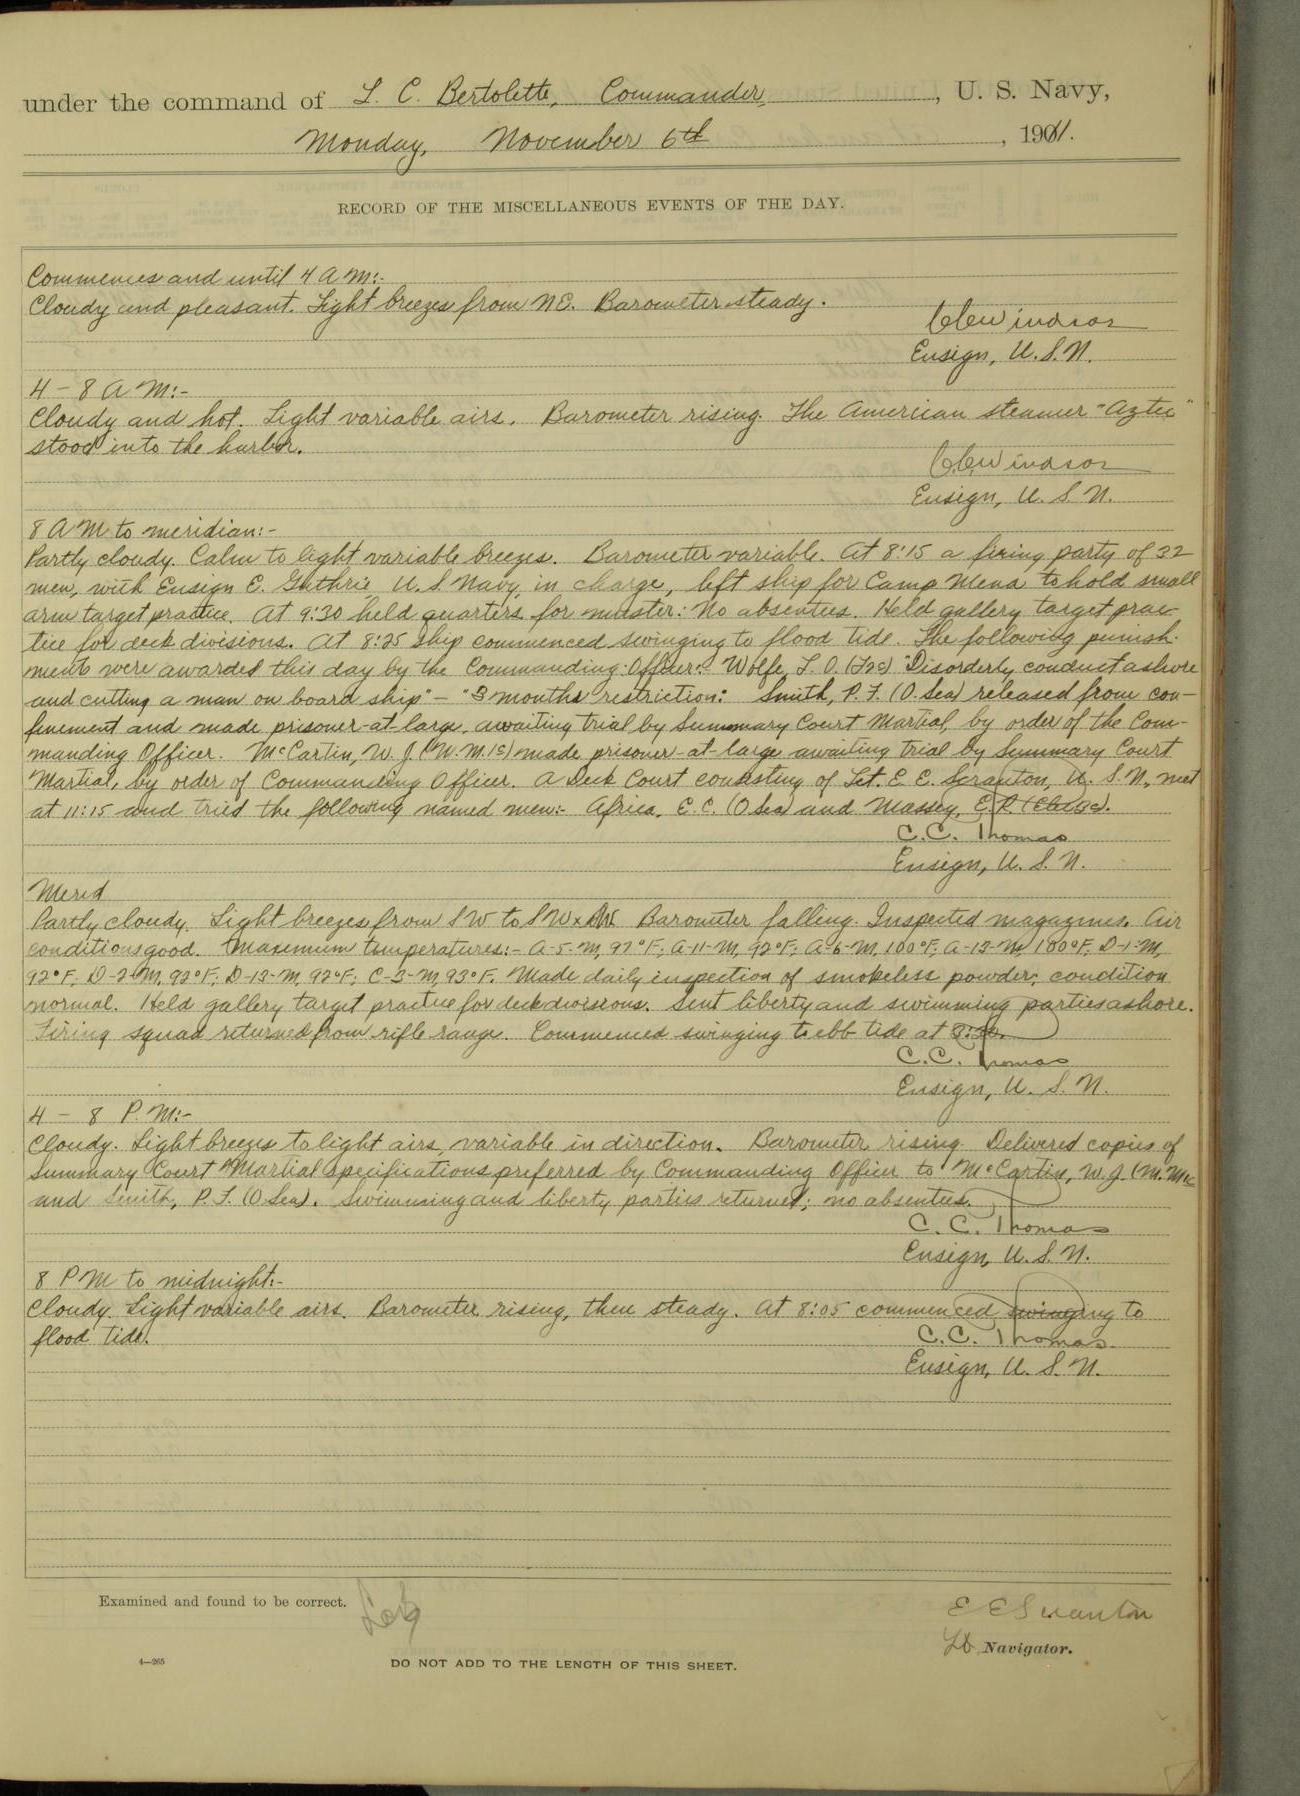 under the command of L. C. Bertolette, Commander, U. S. Navy,
Monday, November 6th, 1911.
RECORD OF THE MISCELLANEOUS EVENTS OF THE DAY.
Commences and until 4 A M:-
Cloudy and pleasant. Light breezes from NE. Barometer steady.
Windsor
Ensign, U. S. N.
4 - 8 A M:-
Cloudy and hot. Light variable airs. Barometer rising. The American steamer "Aztec"
stood into the harbor.
Windsor
Ensign, U. S. N.
8 A M to meridian:-
Partly cloudy. Calm to light variable breezes. Barometer variable. At 8:15 a firing party of 32
men, with Ensign E. Guthrie U. S. Navy, in charge, left ship for Camp Mena to hold small
arm target practice. At 9:30 held quarters for muster: No absentees. Held gallery target prac-
tice for deck divisions. At 8:25 ship commenced swinging to flood tide. The following punish-
ments were awarded this day by the Commanding Officer:- Wolfe, L. O. "Disorderly conduct ashore
and cutting a man on board ship" - "3 months restriction: Smith, P. F. (O. Sea) released from con-
finement and made prisoner-at-large, awaiting trial by Summary Court Martial, by order of the Com-
manding Officer. McCartin, W. J. made prisoner-at-large awaiting trial by Summary Court
Martial, by order of Commanding Officer. A Deck Court consisting of Lt. E. E. Scranton, U. S. N., met
at 11:15 and tried the following named men:- Africa, E. C. (O Sea) and Massey,
C. C. Thomas
Ensign, U. S. N.
Merid
Partly cloudy. Light breezes from SW to SWxW. Barometer falling. Inspected magazines. Air
conditions good. Maximum temperatures:- A-5-M, 97°F; A-11-M, 92°F; A-6-M, 100°F; A-13-M, 100°F; D-1-M,
92°F; D-2-M, 92°F; D-13-M, 92°F; C-3-M, 93°F. Made daily inspection of smokeless powder; condition
normal. Held gallery target practice for deck divisions. Sent liberty and swimming parties ashore.
Firing squad returned from rifle range. Commenced swinging to ebb tide at
C. C. Thomas
Ensign, U. S. N.
4 - 8 P. M:-
Cloudy. Light breezes to light airs, variable in direction. Barometer rising. Delivered copies of
Summary Court Martial specifications preferred by Commanding Officer to McCartin, W. J.
and Smith, P. F. (O Sea). Swimming and liberty parties returned; no absentees.
C. C. Thomas
Ensign, U. S. N.
8 P M to midnight:-
Cloudy. Light variable airs. Barometer rising, then steady. At 8:05 commenced swinging to
flood tide.
C. C. Thomas
Ensign, U. S. N.
Examined and found to be correct.
E E Scranton
Lt. Navigator.
4—265
DO NOT ADD TO THE LENGTH OF THIS SHEET.